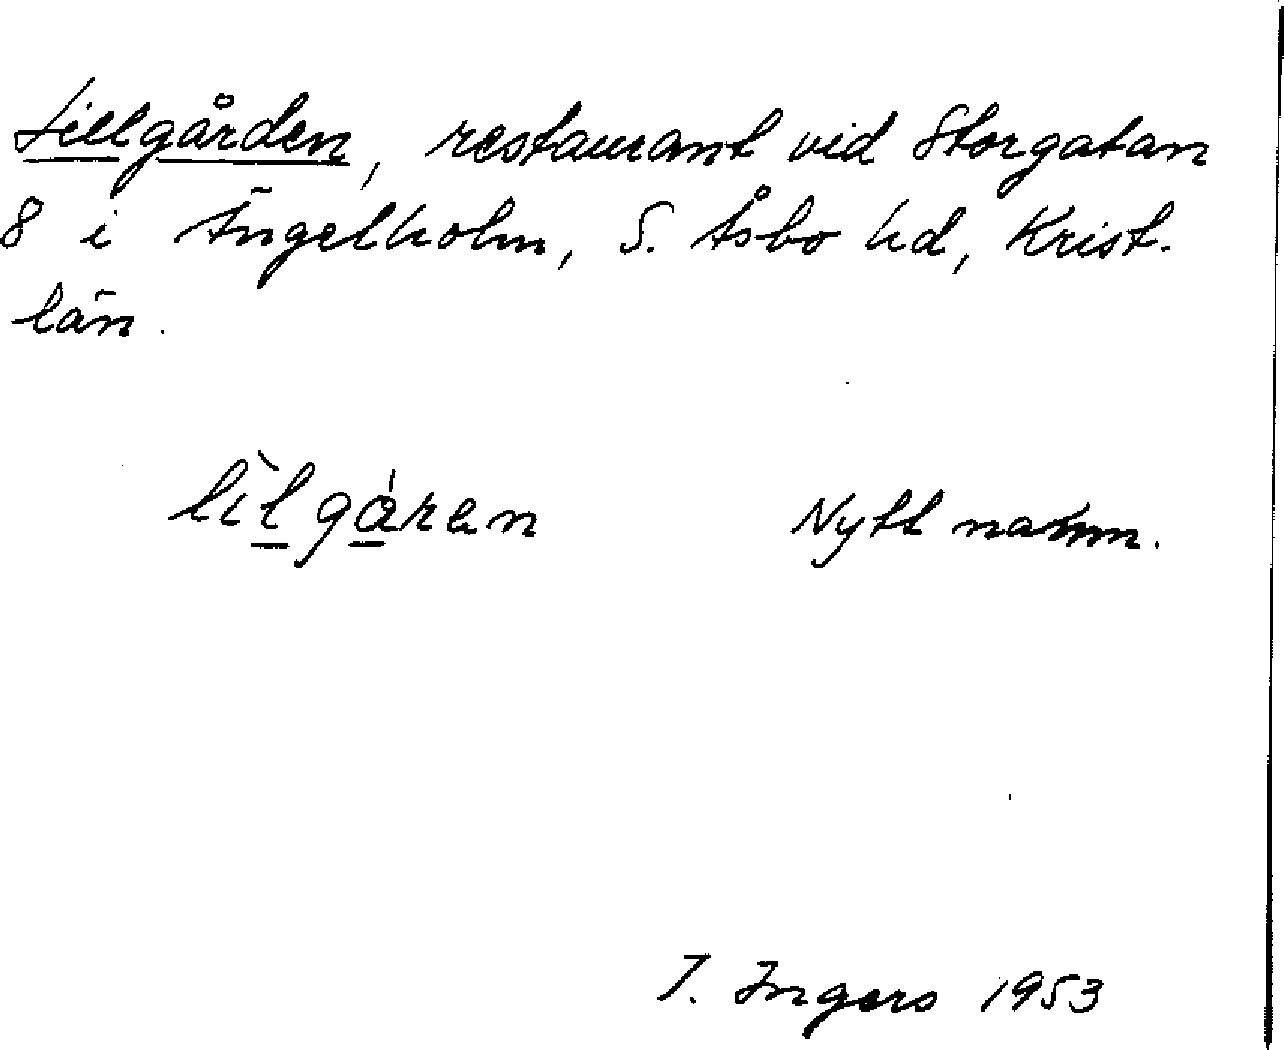 Lillgården, restaurant vid Storgatan
8 i Ängelholm, S. Åsbo hd, Krist.
län.
lìlgáren Nytt namn.
I. Ingers 1953